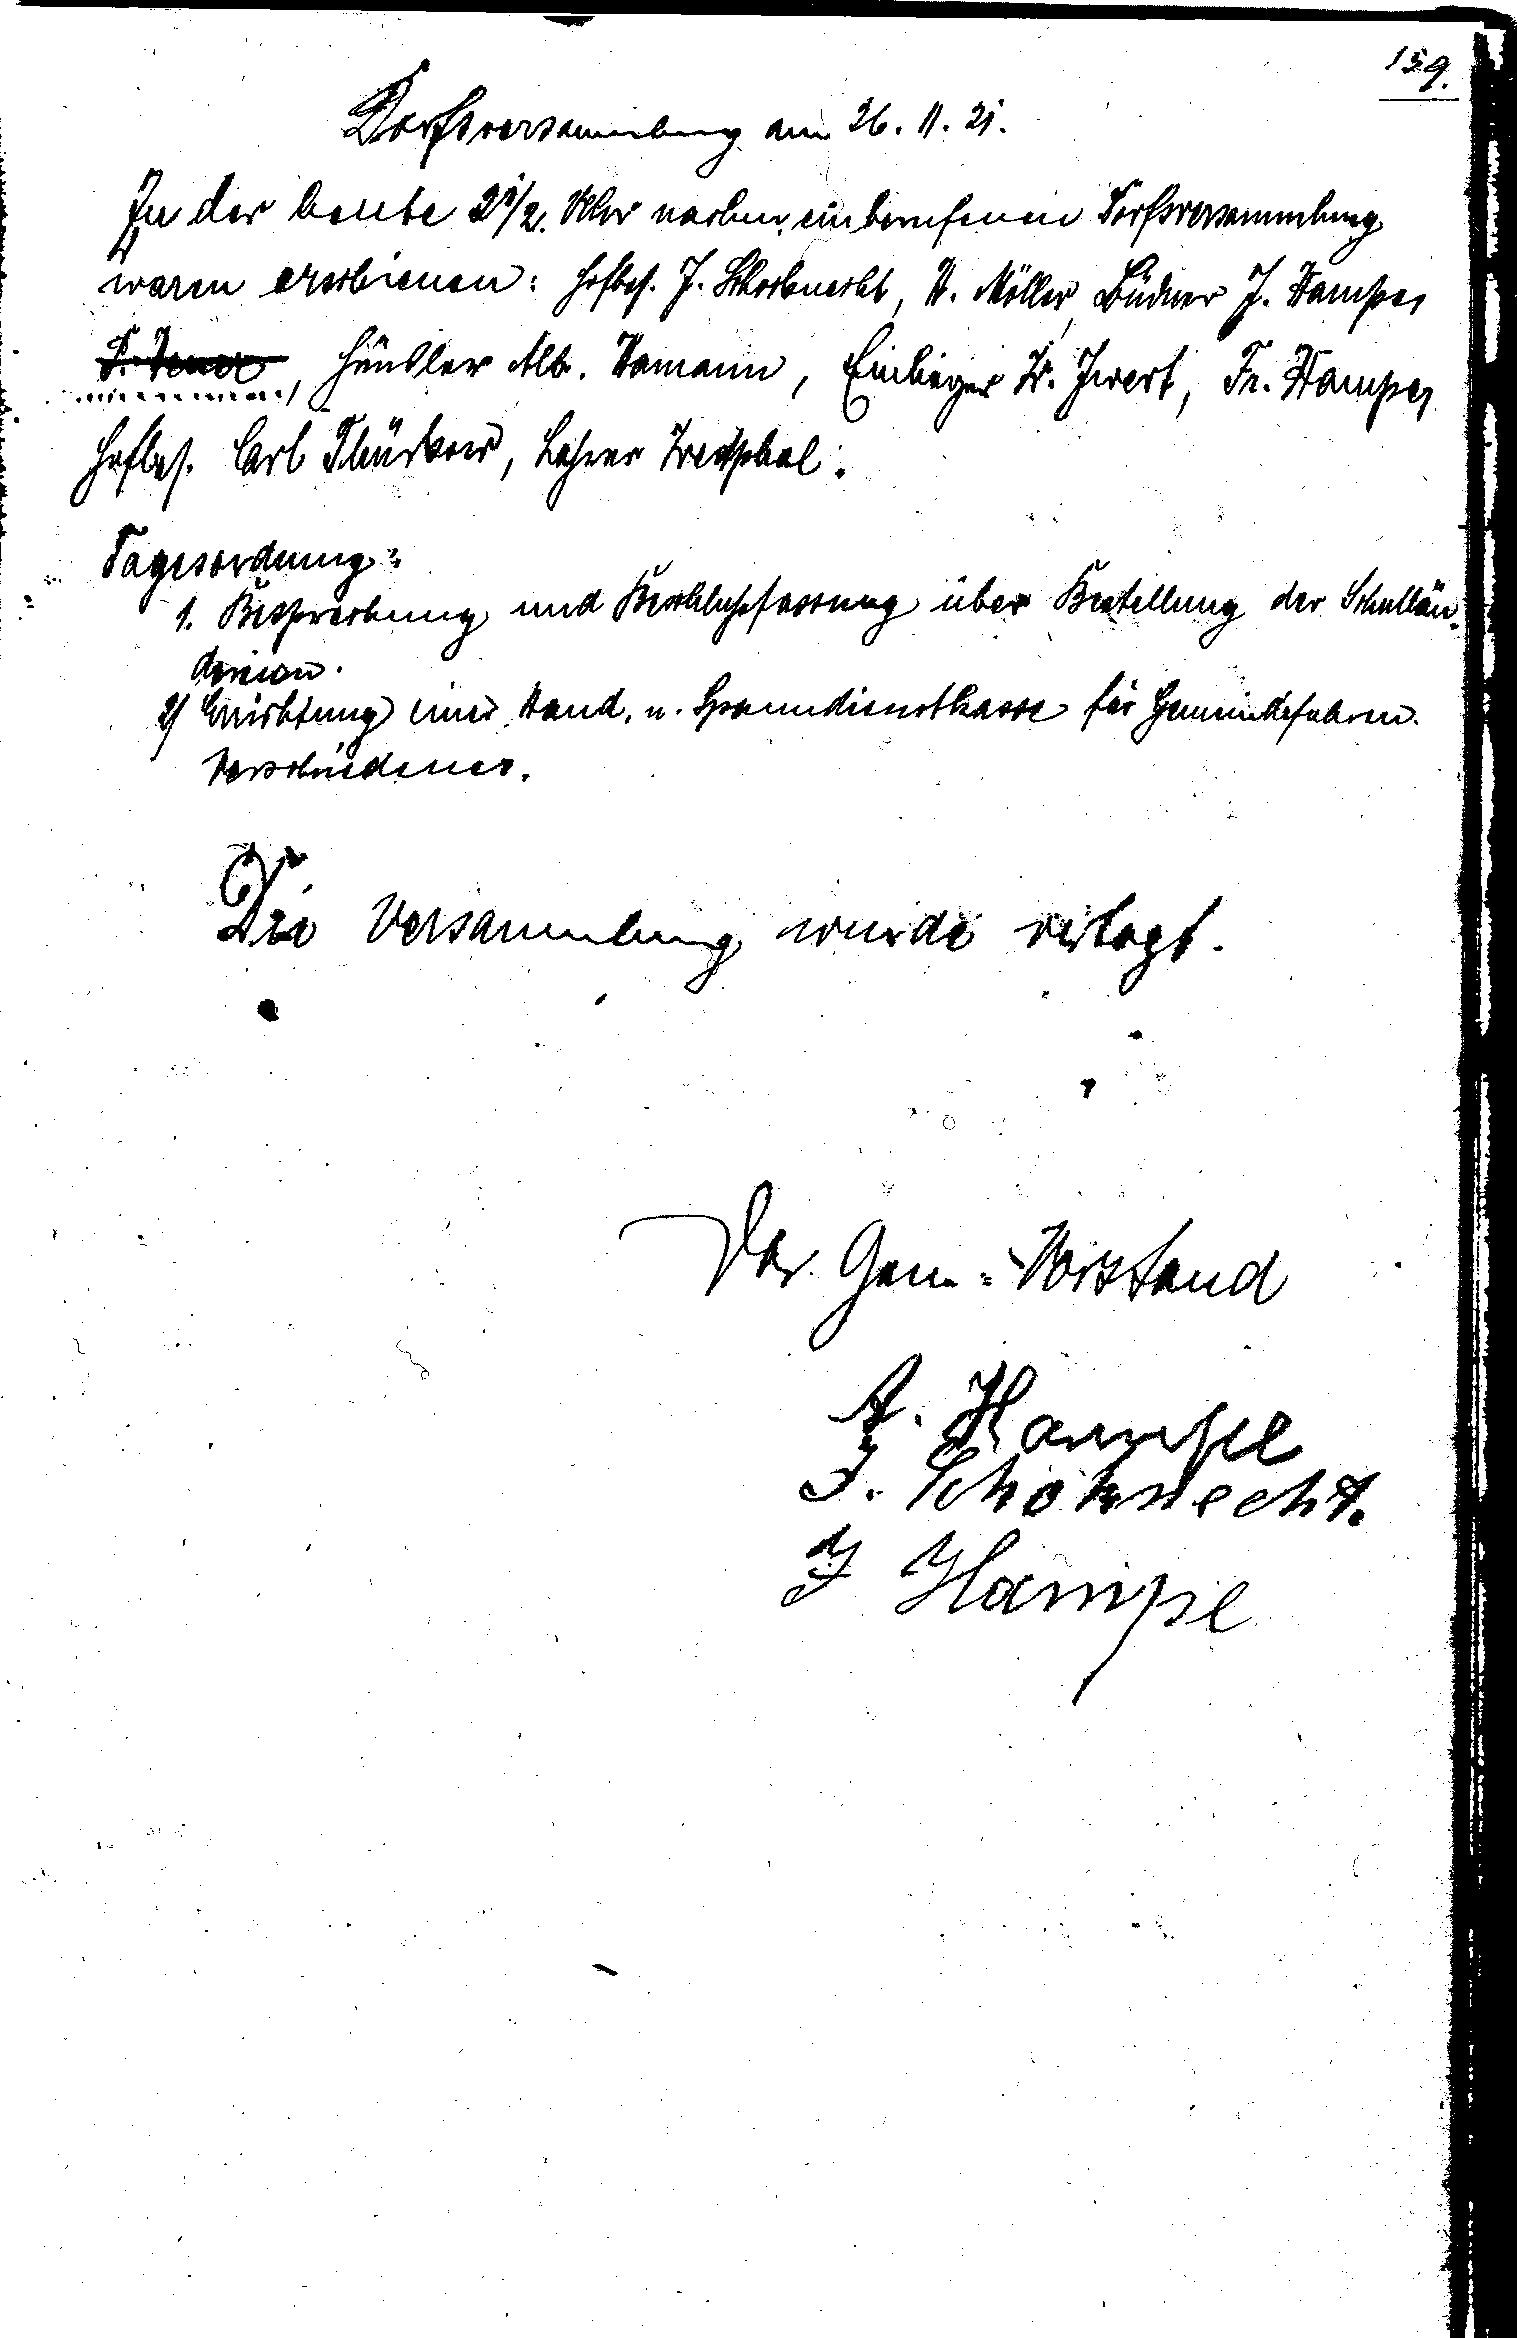 159.
Dorfsversammlung am 26. 11. 21.
In der heute 2 1/2. Uhr nachm. einberufenen Dorfsversammlung
waren erschienen: Hofbes. J. Schoknecht, H. Möller, Büdner J. Hampe,
Häusler Alb. Hamann, Einlieger W. Ewert, Fr. Hampe,
Hofbes. Carl Thürkow, Lehrer Westphal.
Tagesordnung:
1. Besprechung und Beschlußfassung über Bestellung der Schullän-
dereien.
2) Errichtung einer Hand. u. Spanndienstkasse für Gemeindefuhren.
Verschiedenes.
Die Versammlung wurde vertagt.
Der Gem.-Vorstand
A. Hampe
J. Schoknecht.
J Hampe